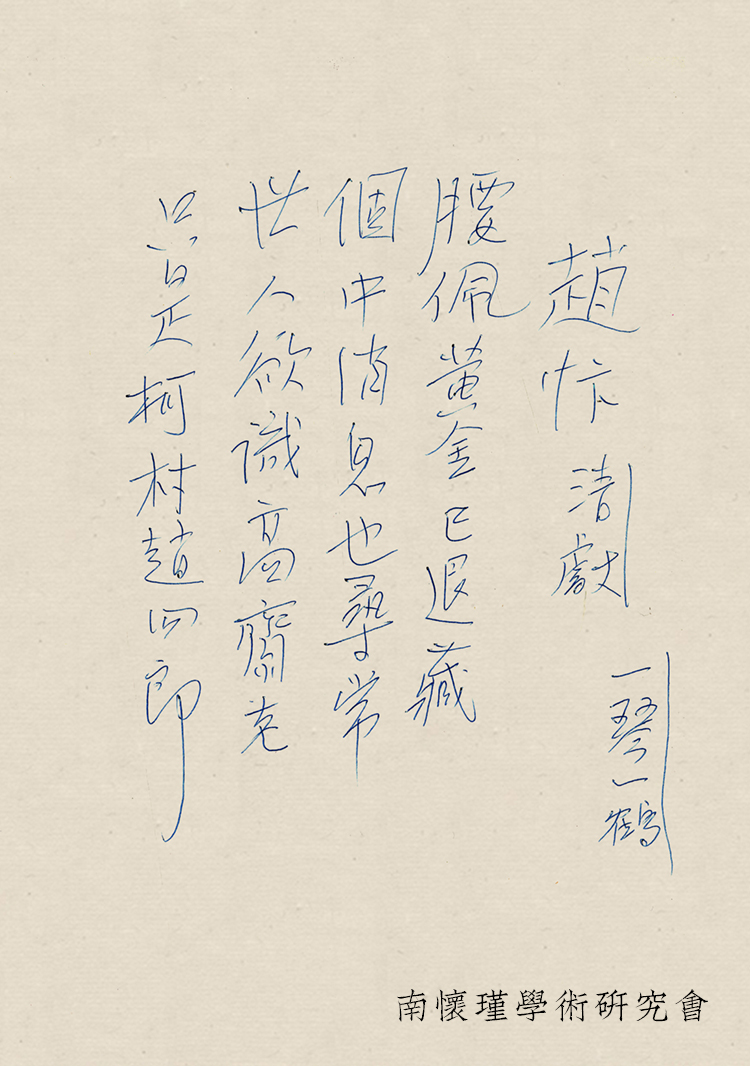 趙忭 清獻
一琴一鶴
腰佩黃金已退藏
個中消息也尋常
世人欲識高齋老
只是柯村趙四郎
南懷瑾學術研究會